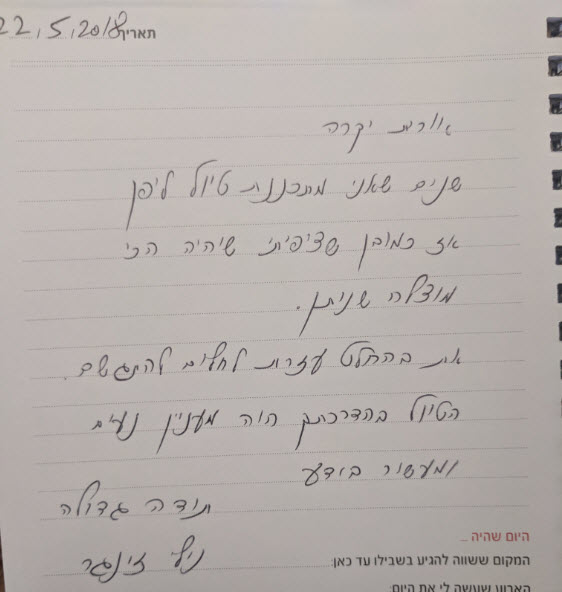 תאריך 22.5.2018
אורית יקרה
שנים שאני מתכננת טיול ליפן
אז כמובן שציפיתי שיהיה הכי
מוצלח שניתן.
את בהחלט עזרת לחלום להתגשם.
הטיול בהדרכתך היה מענין נעים
ומעשיר בידע
תודה גדולה
זינגר
היום שהיה ...
המקום ששווה להגיע בשבילו עד כאן:
הארוע שעשה לי את היום: